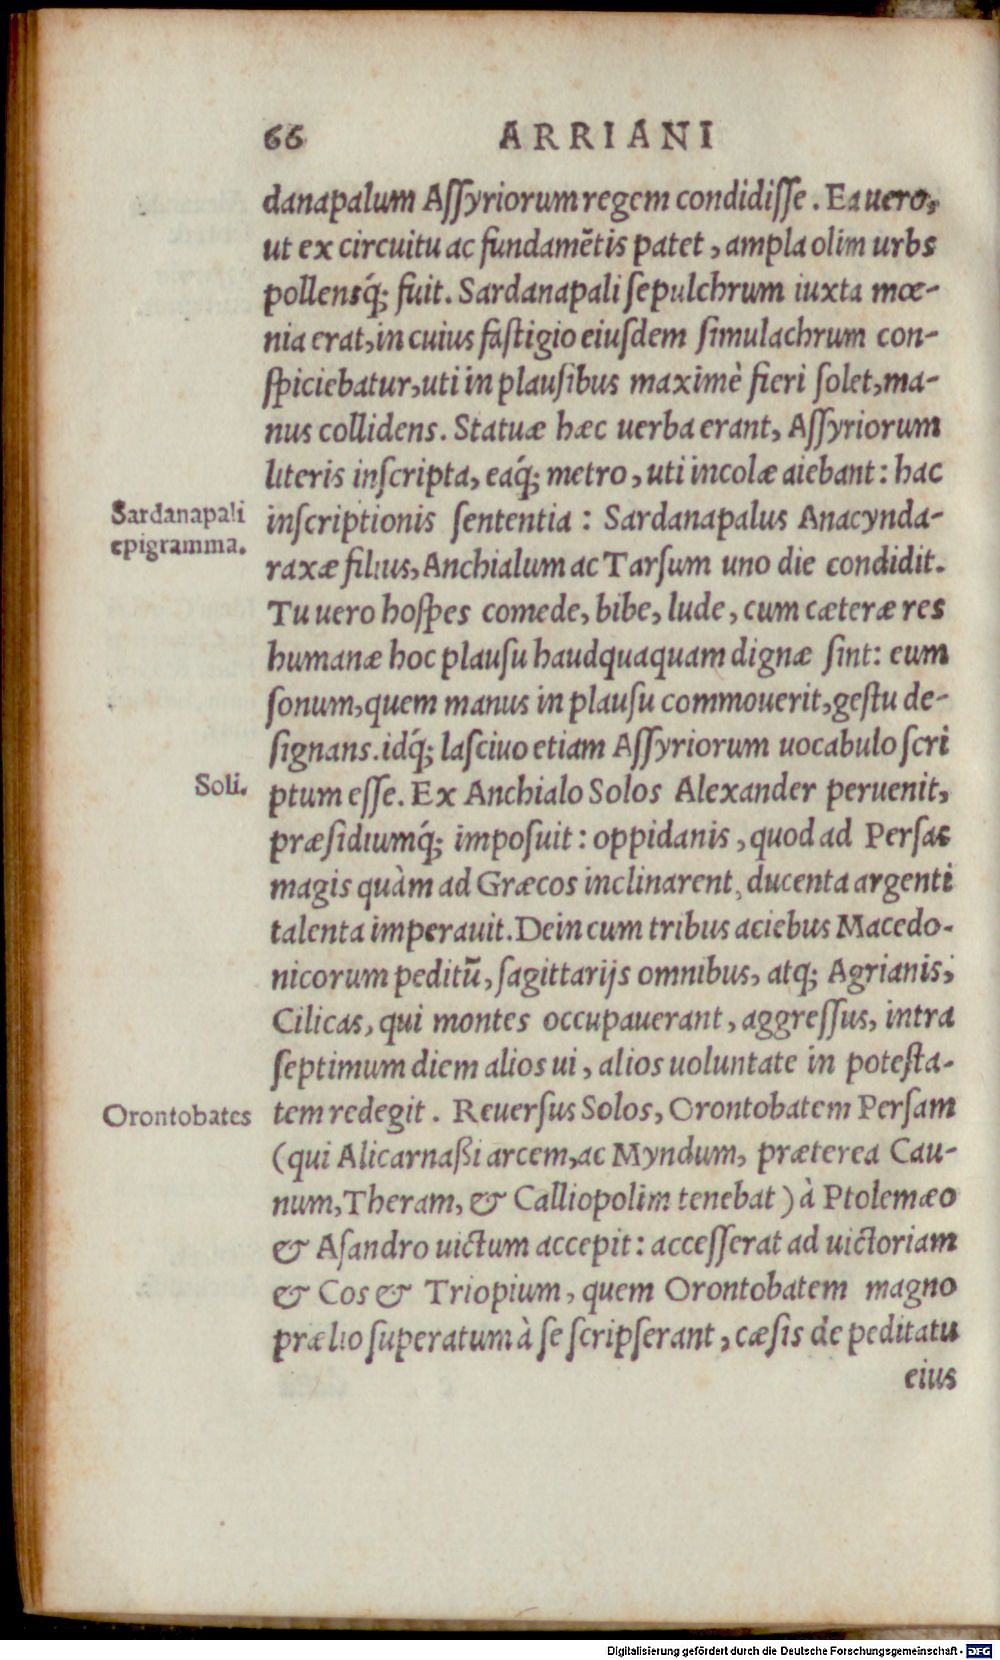 66 ARRIANI
danapalum Aſſyriorum regem condidiſſe. Ea uero,
ut ex circuitu ac fundamētis patet, ampla olim urbs
pollensq́; fuit. Sardanapali ſepulchrum iuxta mœ-
nia erat, in cuius faſtigio eiuſdem ſimulachrum con-
ſpiciebatur, uti in plauſibus maximè fieri ſolet, ma-
nus collidens. Statuæ hæc uerba erant, Aſſyriorum
literis inſcripta, eaq́; metro, uti incolæ aiebant: hac
Sardanapali
epigramma.
inſcriptionis ſententia: Sardanapalus Anacynda-
raxæ filius, Anchialum ac Tarſum uno die condidit.
Tu uero hoſpes comede, bibe, lude, cum cæteræ res
humanæ hoc plauſu haudquaquam dignæ ſint: eum
ſonum, quem manus in plauſu commouerit, geſtu de-
ſignans. idq́; laſciuo etiam Aſſyriorum uocabulo ſcri
Soli.
ptum eſſe. Ex Anchialo Solos Alexander peruenit,
præſidiumq́; impoſuit: oppidanis, quod ad Perſas
magis quàm ad Græcos inclinarent, ducenta argenti
talenta imperauit. Dein cum tribus aciebus Macedo-
nicorum peditū, ſagittarijs omnibus, atq; Agrianis;
Cilicas, qui montes occupauerant, aggreſſus, intra
ſeptimum diem alios ui, alios uoluntate in poteſta-
Orontobates
tem redegit. Reuerſus Solos, Orontobatem Perſam
(qui Alicarnaßi arcem, ac Myndum, præterea Cau-
num, Theram, & Calliopolim tenebat) à Ptolemæo
& Aſandro uictum accepit: acceſſerat ad uictoriam
& Cos & Triopium, quem Orontobatem magno
prælio ſuperatum à ſe ſcripſerant, cæſis de peditatu
eius
Digitalisierung gefördert durch die Deutsche Forschungsgemeinschaft - DFG